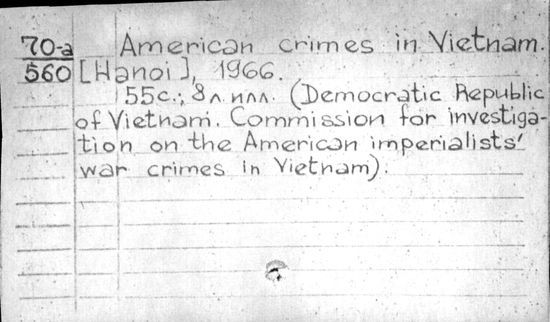 70-a American crimes in Vietnam.
560 [Hanoi], 1966.
55с.; 8 л. илл. (Democratic Republic
of Vietnam. Commission for investiga-
tion on the American imperialists'
war crimes in Vietnam).